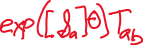 exp([Sₐ]θ)T_ab